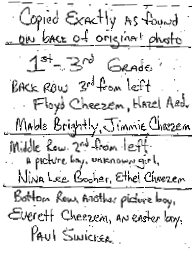 Copied Exactly as found
on back of original photo
1st - 3rd Grade:
Back Row 3rd from left
Floyd Cheezem, Hazel Ard.
Mable Brightly, Jimmie Cheezem
Middle Row. 2nd from left
a picture boy, unknown girl,
Nina Lee Booher, Ethel Cheezem
Bottom Row, Another picture boy,
Everett Cheezem, an easter boy,
Paul